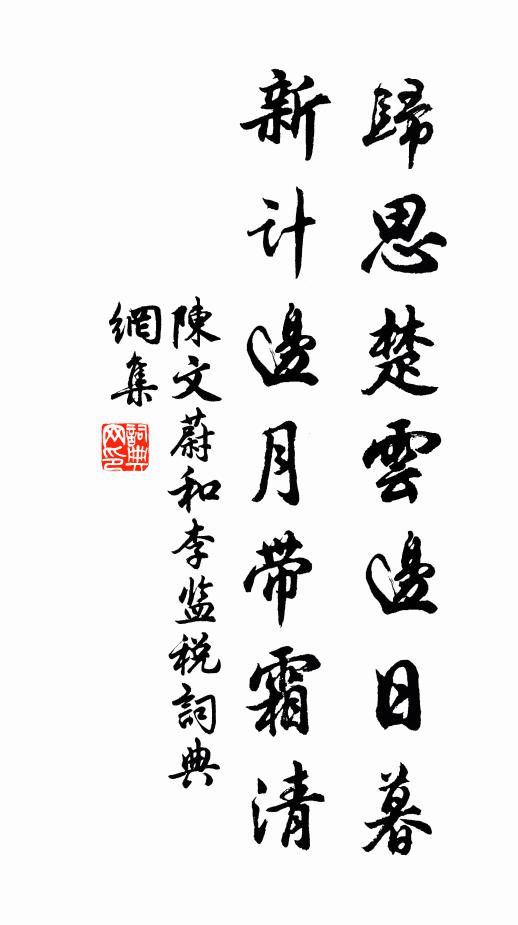 歸思楚雲邊日暮
新计邊月带霜清
陳文蔚和李监税詞典
網集
詞典網印